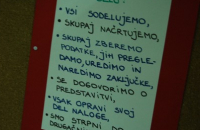 • VSI SODELUJEMO,
• SKUPAJ NAČRTUJEMO,
• SKUPAJ ZBEREMO
PODATKE, JIH PREGLE-
DAMO, UREDIMO IN
NAREDIMO ZAKLJUČKE,
• SE DOGOVORIMO O
PREDSTAVITVI,
• VSAK OPRAVI SVOJ
DEL NALOGE,
• SMO STRPNI DO